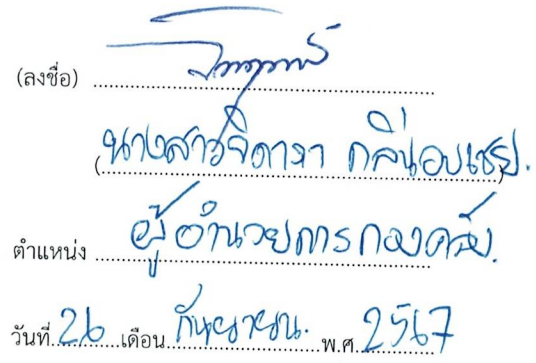 (ลงชื่อ)
(นางสาวจิดาภา กลิ่นอบเชย)
ตำแหน่ง ผู้อำนวยการกองคลัง
วันที่ 26 เดือน กันยายน พ.ศ. 2567